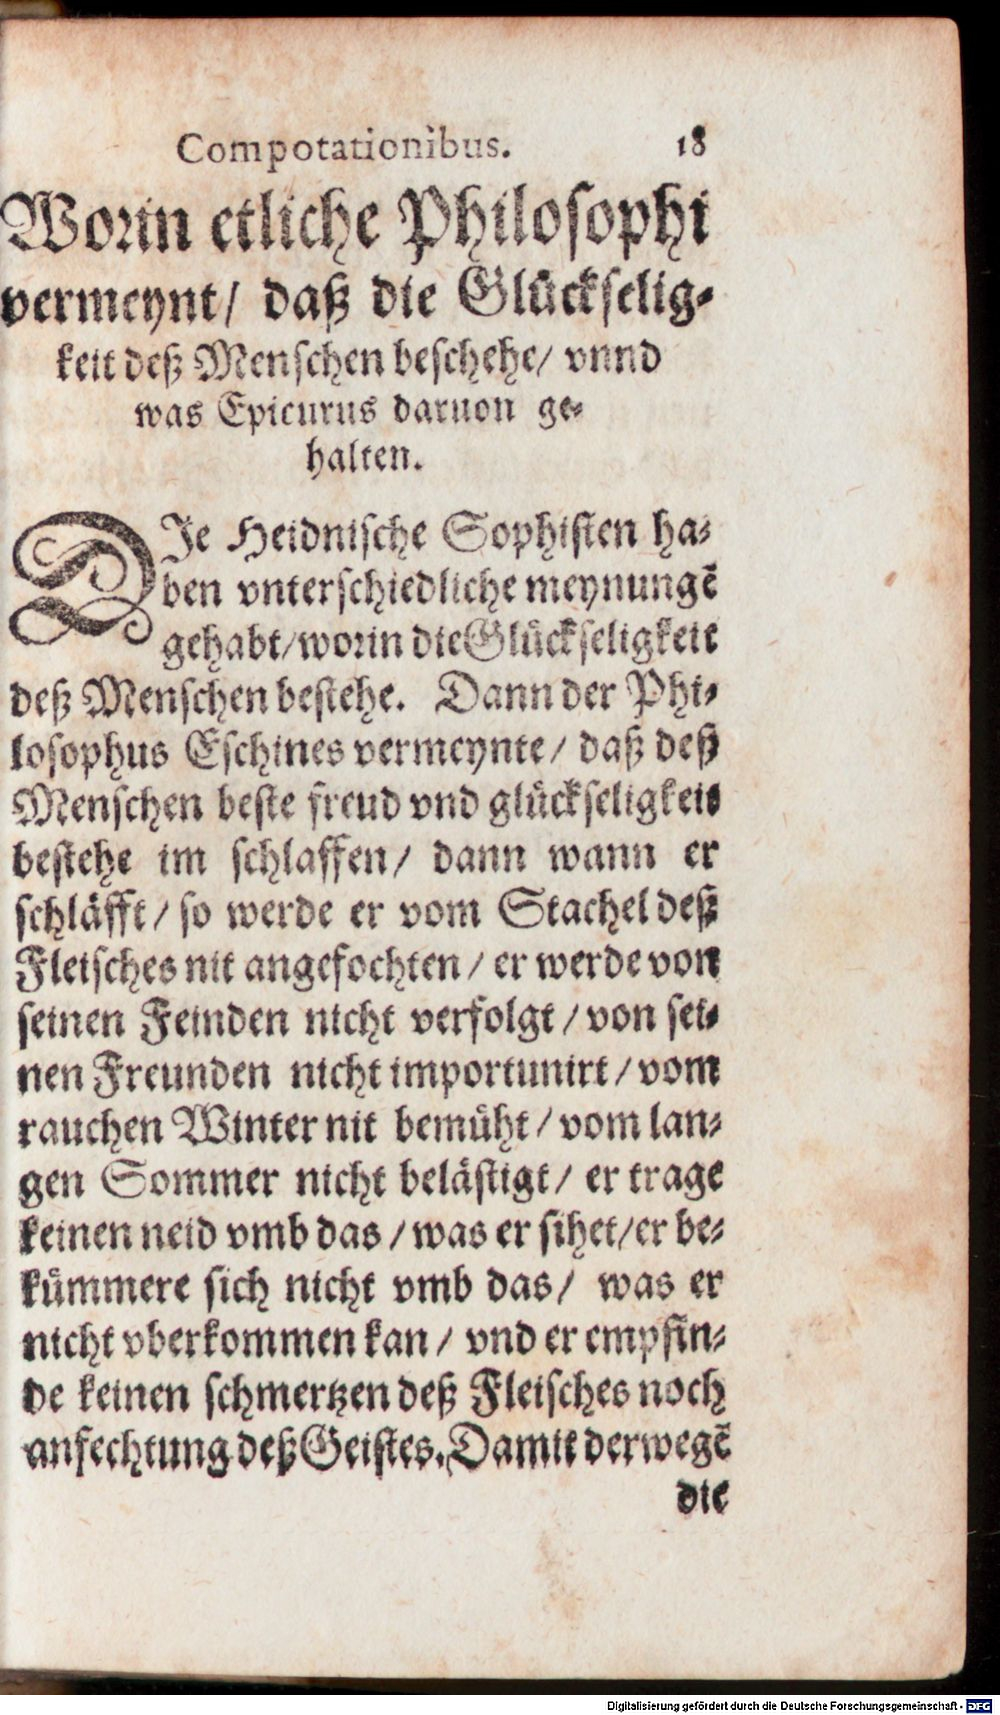 Compotationibus. 18
Worin etliche Philosophi
vermeynt/ daß die Glückselig-
keit deß Menschen beschehe/ vnnd
was Epicurus daruon ge-
halten.
DIe Heidnische Sophisten ha-
ben vnterschiedliche meynungē
gehabt/worin die Glückseligkeit
deß Menschen bestehe. Dann der Phi-
losophus Eschines vermeynte/ daß deß
Menschen beste freud vnd glückseligkeit
bestehe im schlaffen/ dann wann er
schläfft/ so werde er vom Stachel deß
Fleisches nit angefochten/ er werde von
seinen Feinden nicht verfolgt/ von sei-
nen Freunden nicht importunirt/ vom
rauchen Winter nit bemüht/ vom lan-
gen Sommer nicht belästigt/ er trage
keinen neid vmb das/ was er sihet/er be-
kümmere sich nicht vmb das/ was er
nicht vberkommen kan/ vnd er empfin-
de keinen schmertzen deß Fleisches noch
anfechtung deß Geistes. Damit derwegē
die
Digitalisierung gefördert durch die Deutsche Forschungsgemeinschaft - DFG